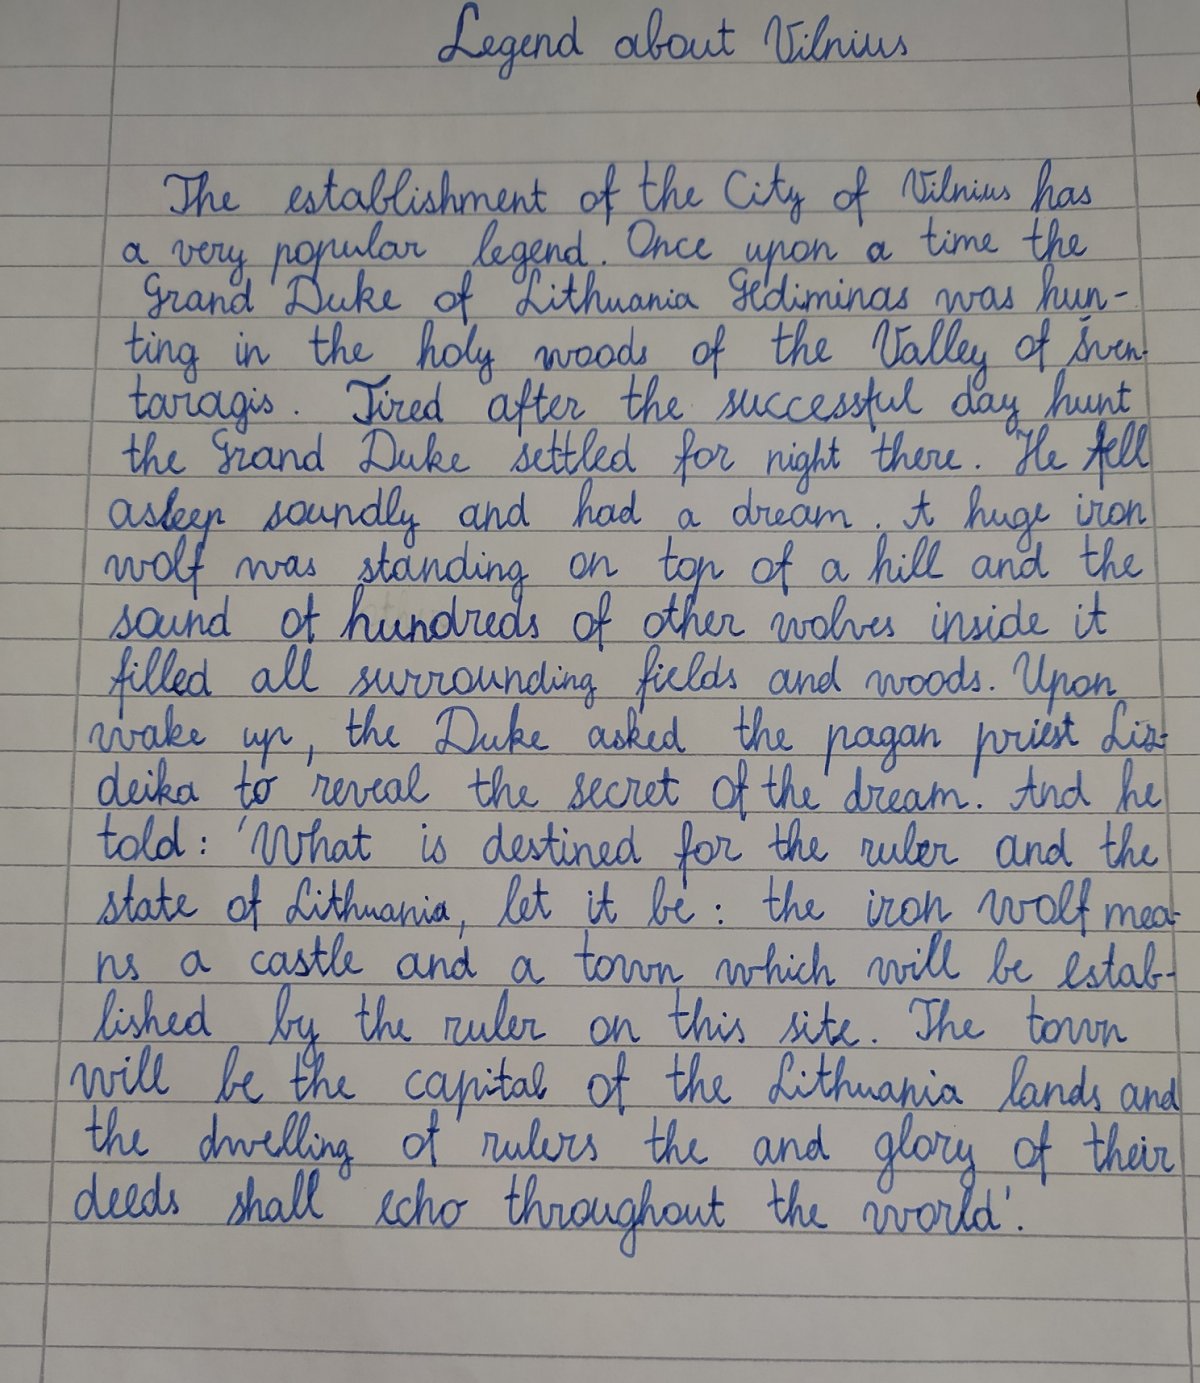 Legend about Vilnius
The establishment of the City of Vilnius has
a very popular legend. Once upon a time the
Grand Duke of Lithuania Gediminas was hun-
ting in the holy woods of the Valley of Šven-
taragis. Tired after the successful day hunt
the Grand Duke settled for night there. He fell
asleep soundly and had a dream. A huge iron
wolf was standing on top of a hill and the
sound of hundreds of other wolves inside it
filled all surrounding fields and woods. Upon
wake up, the Duke asked the pagan priest Liz-
deika to reveal the secret of the dream. And he
told: 'What is destined for the ruler and the
state of Lithuania, let it be: the iron wolf mea-
ns a castle and a town which will be estab-
lished by the ruler on this site. The town
will be the capital of the Lithuania lands and
the dwelling of rulers the and glory of their
deeds shall echo throughout the world'.